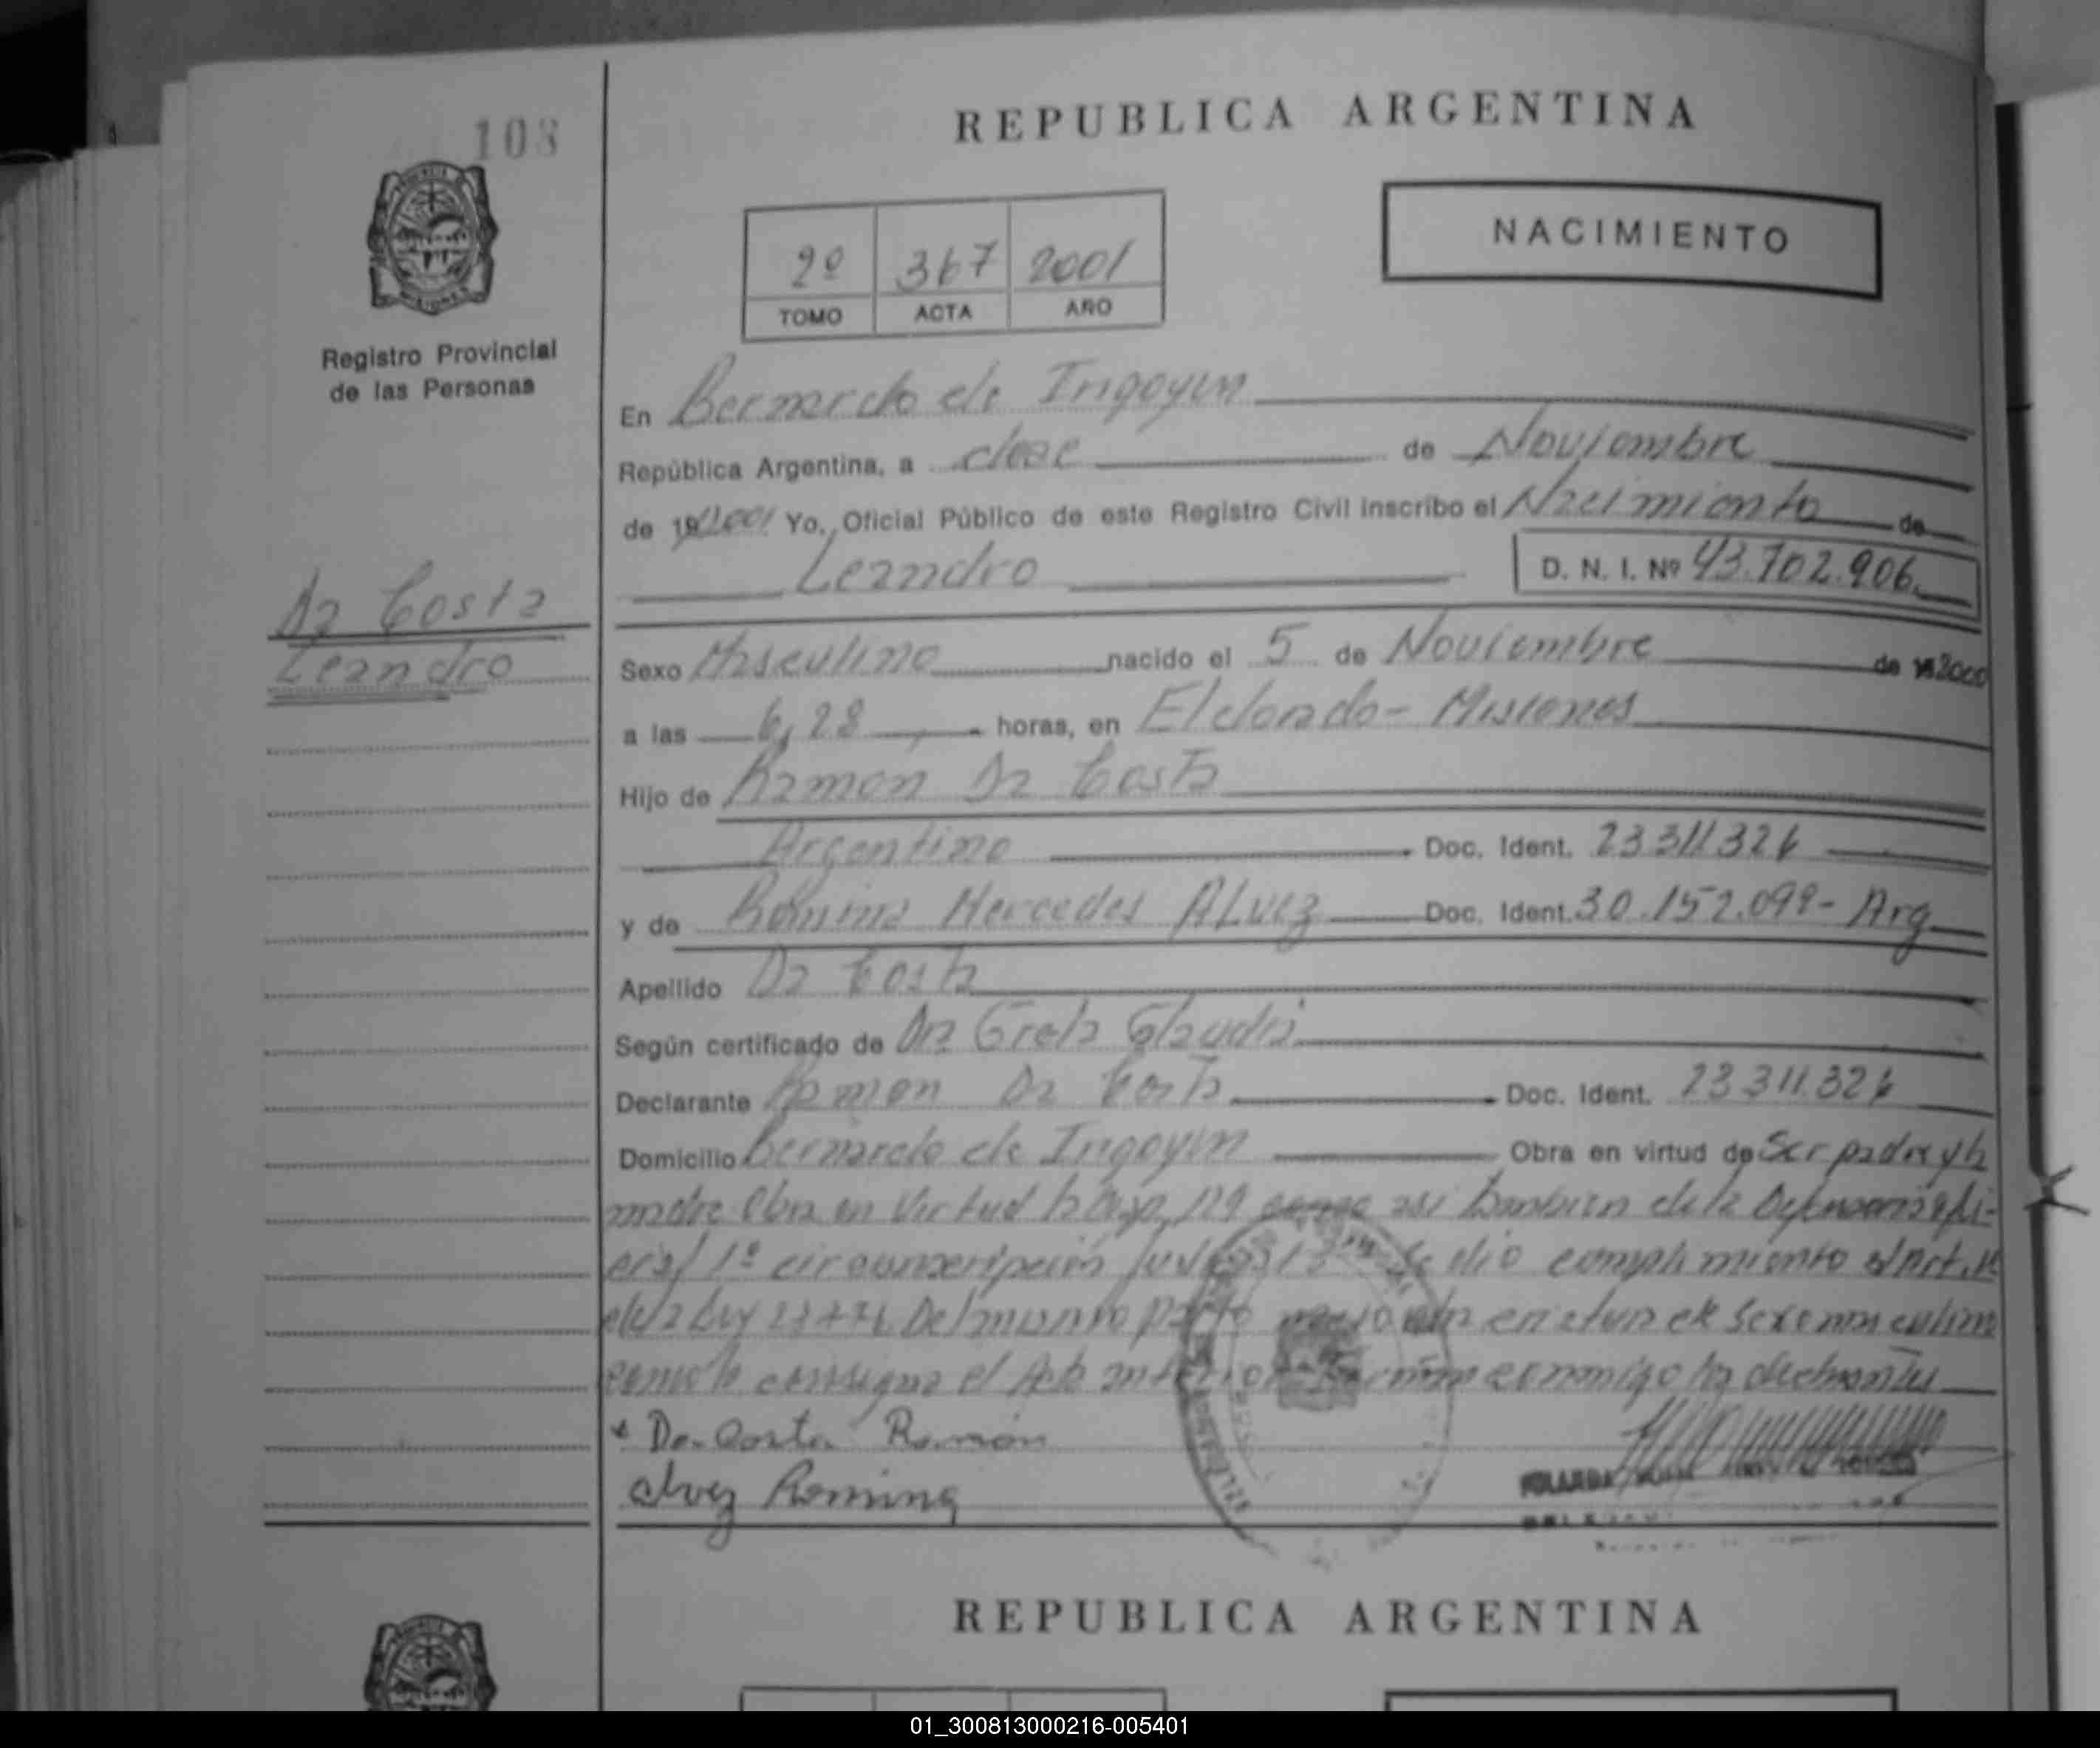 108
REPUBLICA ARGENTINA
NACIMIENTO
2º 367 2001
TOMO ACTA AÑO
Registro Provincial
de las Personas
En Bernardo de Irigoyen
República Argentina, a doce de Noviembre
de 19 2001 Yo, Oficial Público de este Registro Civil inscribo el Nacimiento de
Leandro D. N. I. Nº 43.702.906
Da Costa
Leandro
Sexo Masculino nacido el 5 de Noviembre de 19 2000
a las 6,28 horas, en Eldorado - Misiones
Hijo de Ramon Da Costa
Argentino Doc. Ident. 23311326
y de Romina Mercedes ALvez Doc. Ident. 30.152.099 - Arg
Apellido Da Costa
Según certificado de Dra Greta Claudia
Declarante Ramon Da Costa Doc. Ident. 23311.326
Domicilio Bernardo de Irigoyen Obra en virtud de Ser padre y la
madre Obra en Virtud asi tambien de la
1º circunscripción dio cumplimiento al Art.
de la Ley el sexo masculino
como lo consigna el Acta conmigo los declarantes
Da Costa Ramón
Alvez Romina
REPUBLICA ARGENTINA
01_300813000216-005401